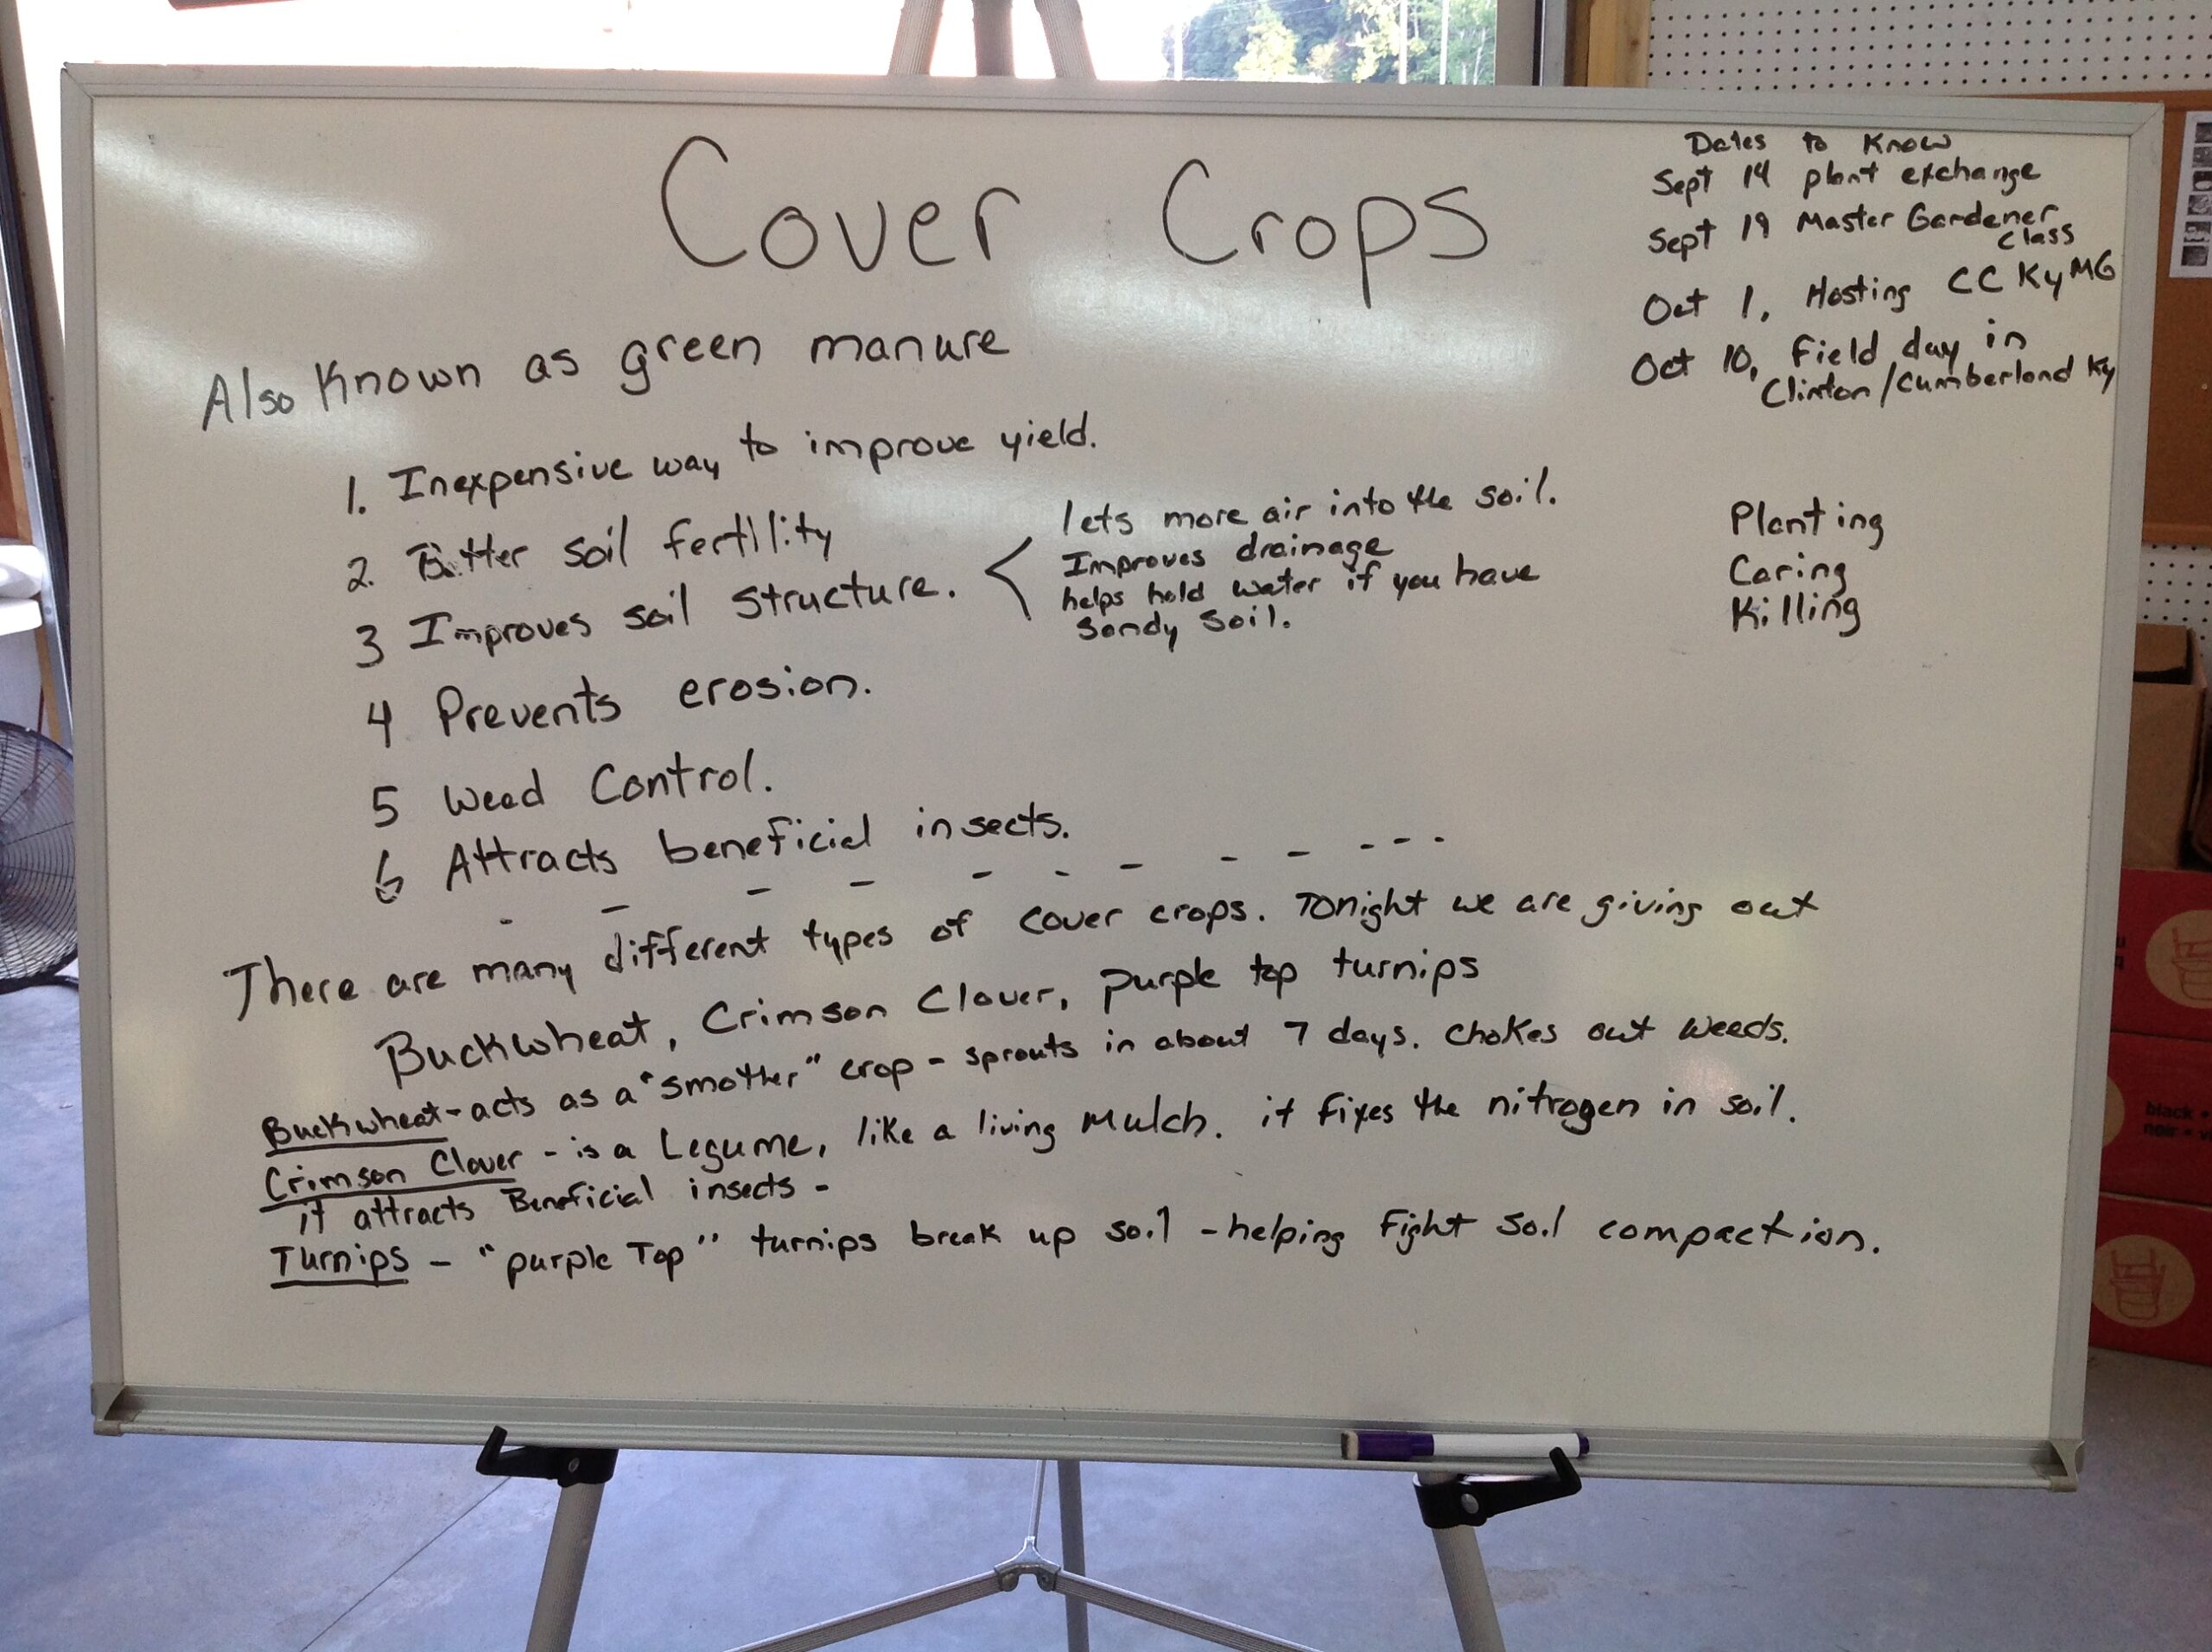 Cover Crops
Also Known as green manure
1. Inexpensive way to improve yield.
2. Better soil fertility
3 Improves soil structure.
lets more air into the soil.
Improves drainage
helps hold water if you have
Sandy Soil.
4 Prevents erosion.
5 Weed Control.
6 Attracts beneficial insects.
There are many different types of cover crops. Tonight we are giving out
Buckwheat, Crimson Clover, purple top turnips
Buckwheat - acts as a "smother" crop - sprouts in about 7 days. Chokes out weeds.
Crimson Clover - is a Legume, like a living Mulch. it fixes the nitrogen in soil.
it attracts Beneficial insects -
Turnips - "purple Top" turnips break up soil - helping Fight Soil compaction.
Dates to Know
Sept 14 plant exchange
Sept 19 Master Gardener
Class
Oct 1, Hosting CC Ky MG
Oct 10, Field day in
Clinton/Cumberland Ky
Planting
Caring
Killing
black
noir